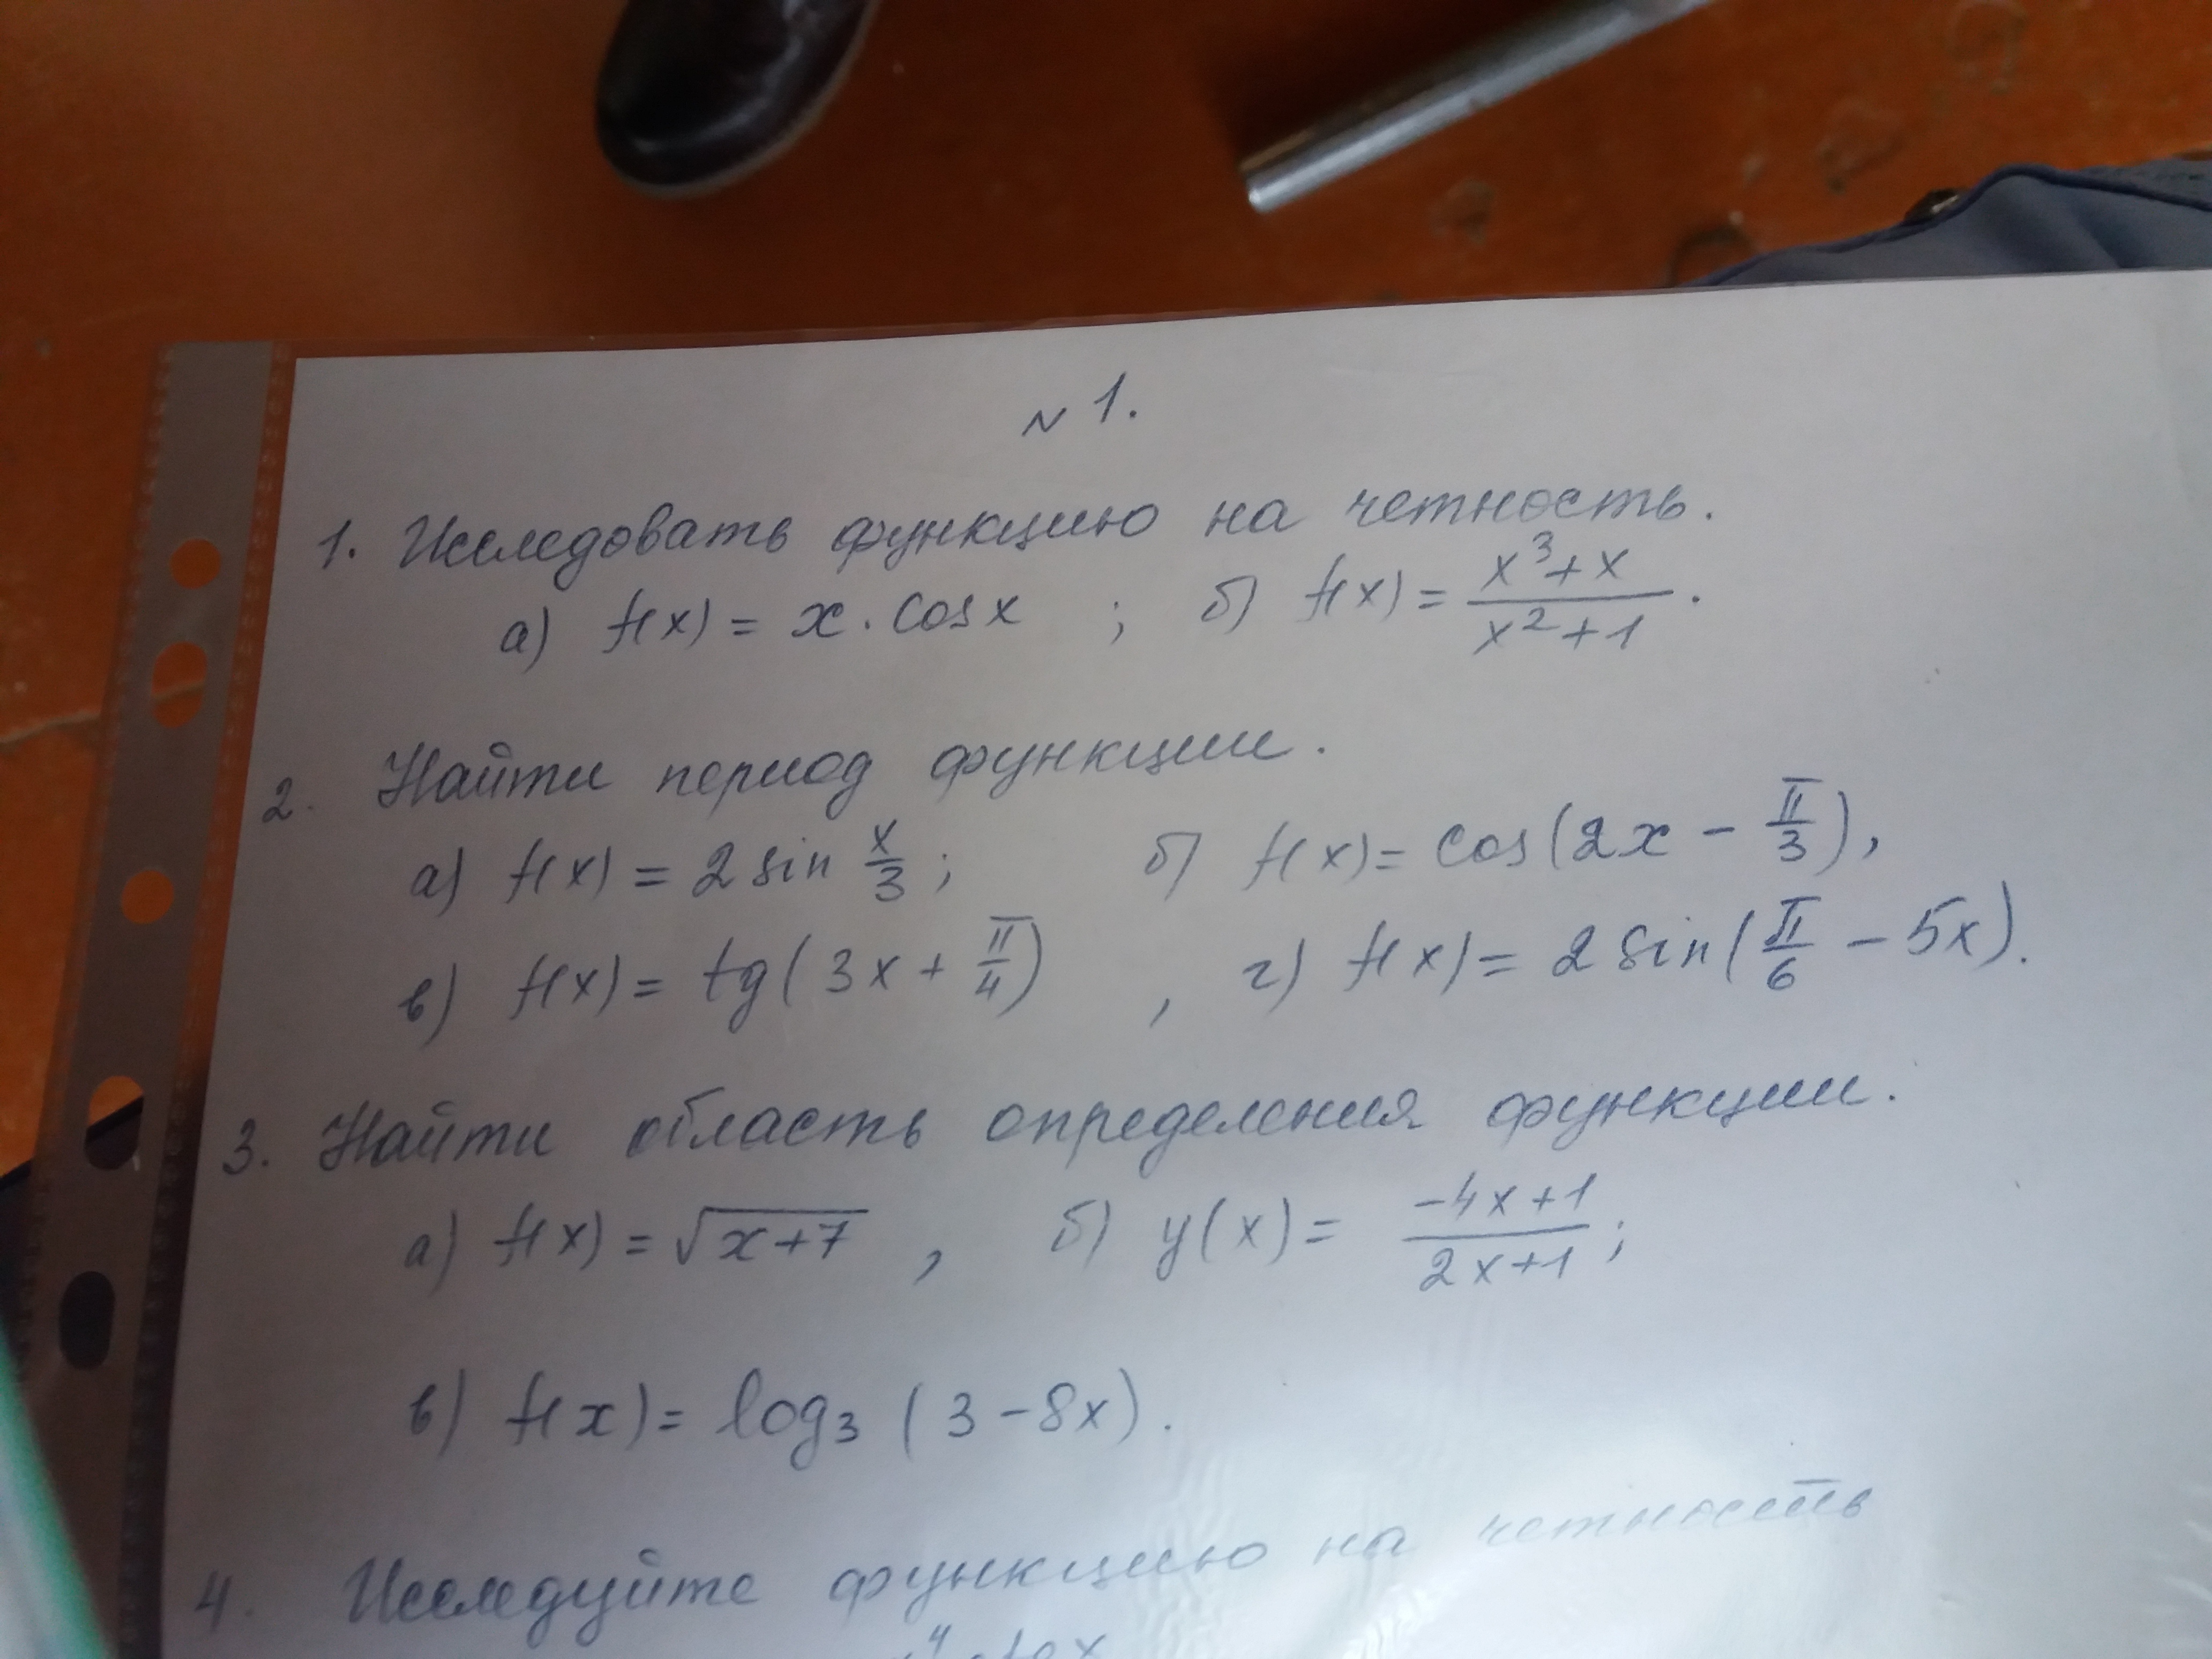 N 1.
1. Исследовать функцию на четность.
а) f(x) = x · cos x ; б) f(x) = (x³+x)/(x²+1).
2. Найти период функции.
а) f(x) = 2 sin x/3 ; б) f(x) = cos(2x - π/3),
в) f(x) = tg(3x + π/4) , г) f(x) = 2 sin(π/6 - 5x).
3. Найти область определения функции.
а) f(x) = √(x+7) , б) y(x) = (-4x+1)/(2x+1) ;
в) f(x) = log₃ (3-8x).
4. Исследуйте функцию на четность